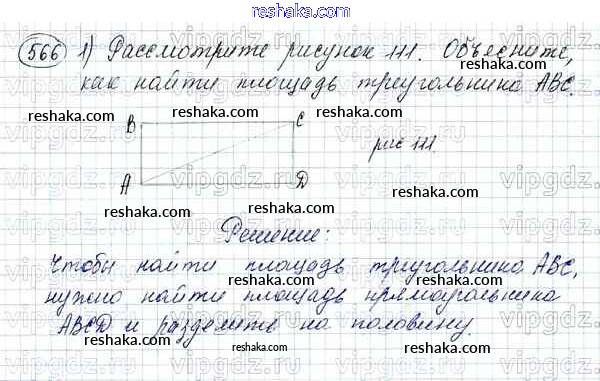 reshaka.com
566 1) Рассмотрите рисунок 111. Объясните,
как найти площадь треугольника ABC.
reshaka.com reshaka.com reshaka.com
B C
рис 111.
A D
reshaka.com reshaka.com reshaka.com
Решение:
Чтобы найти площадь треугольника ABC,
reshaka.com reshaka.com reshaka.com
нужно найти площадь прямоугольника
ABCD и разделить на половину.
reshaka.com reshaka.com reshaka.com
vipgdz.com